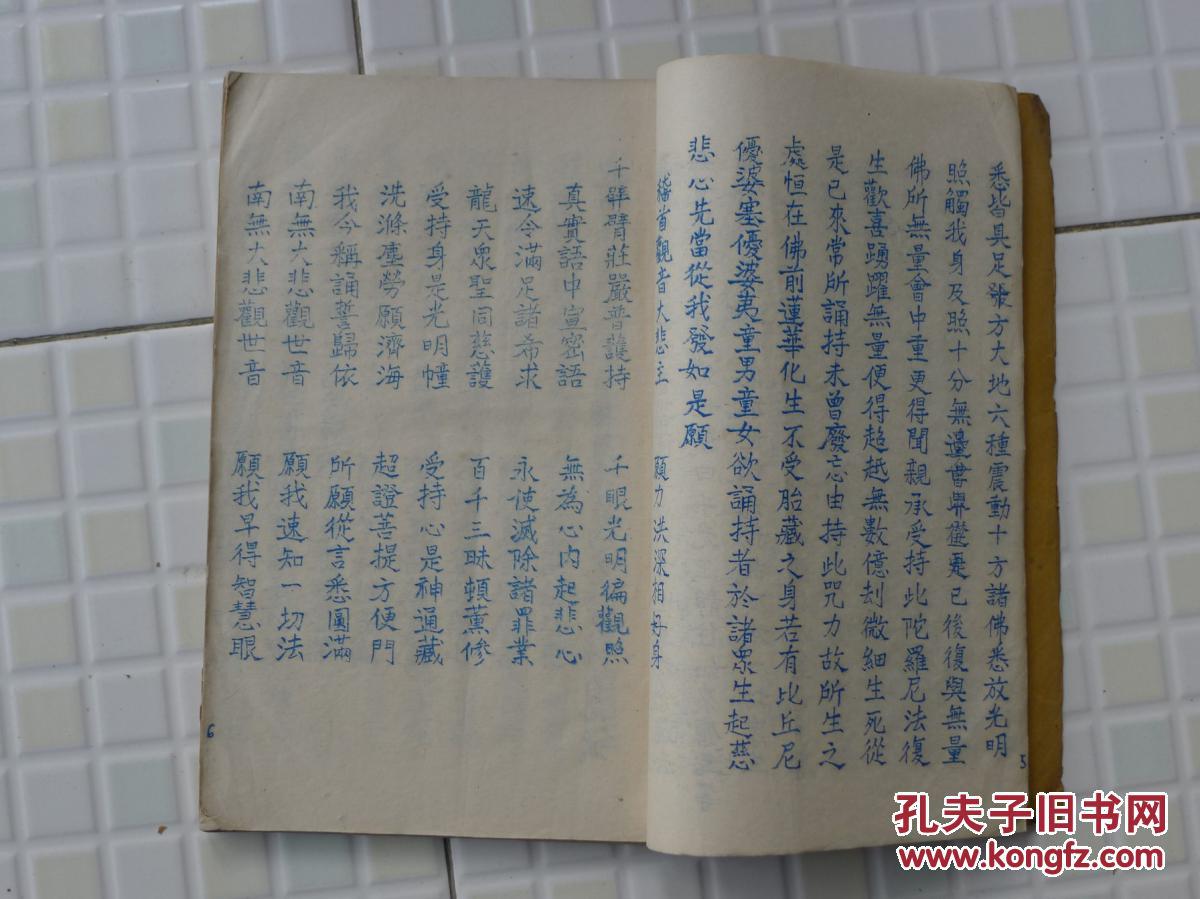 悉皆具足張方大地六種震動十方諸佛悉放光明
照觸我身及照十分無邊世界從是已後復與無量
佛所無量會中重更得聞親承受持此陀羅尼法復
生歡喜踴躍無量便得超越無數億刦微細生死從
是已來常所誦持未曾廢忘由持此咒力故所生之
處恒在佛前蓮華化生不受胎藏之身若有比丘尼
優婆塞優婆夷童男童女欲誦持者於諸眾生起慈
悲心先當從我發如是願
稽首觀音大悲主 願力洪深相好身
千臂莊嚴普護持 千眼光明徧觀照
真實語中宣密語 無為心內起悲心
速令滿足諸希求 永使滅除諸罪業
龍天眾聖同慈護 百千三昧頓薰修
受持身是光明幢 受持心是神通藏
洗滌塵勞願濟海 超證菩提方便門
我今稱誦誓歸依 所願從言悉圓滿
南無大悲觀世音 願我速知一切法
南無大悲觀世音 願我早得智慧眼
5
6
孔夫子旧书网
www.kongfz.com